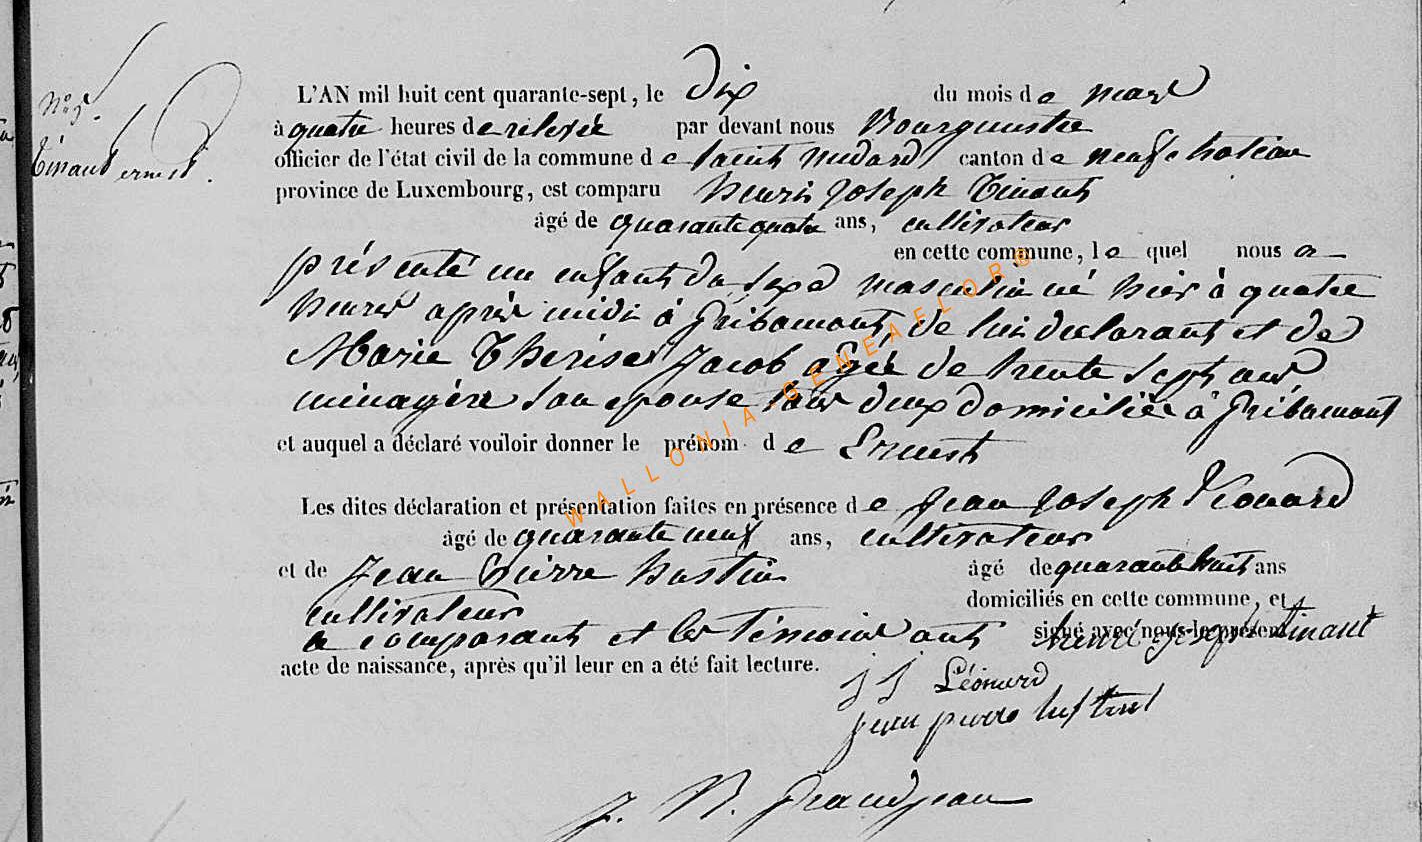 N° 9.
Tinant ernest.
L'AN mil huit cent quarante-sept, le dix du mois de mars
à quatre heures de relevée par devant nous Bourgmestre
officier de l'état civil de la commune de saint medard canton de neufchateau
province de Luxembourg, est comparu henri joseph Tinant
âgé de quarante quatre ans, cultivateur
en cette commune, le quel nous a
présenté un enfant du sexe masculin né hier à quatre
heures après midi à gribomont, de lui declarant et de
Marie Therese Jacob agée de trente sept ans
ménagère son epouse tous deux domiciliés à gribomont
et auquel a déclaré vouloir donner le prénom de Ernest
Les dites déclaration et présentation faites en présence de jean joseph Léonard
âgé de quarante neuf ans, cultivateur
et de jean Pierre hustin âgé de quarante huit ans
cultivateur domiciliés en cette commune, et
le comparant et les témoins ont signé avec nous le présent
acte de naissance, après qu'il leur en a été fait lecture.
henri joseph tinant
j j Léonard
jean pierre hustin
J. B. grandjean
WALLONIA-GENEAFLOR©